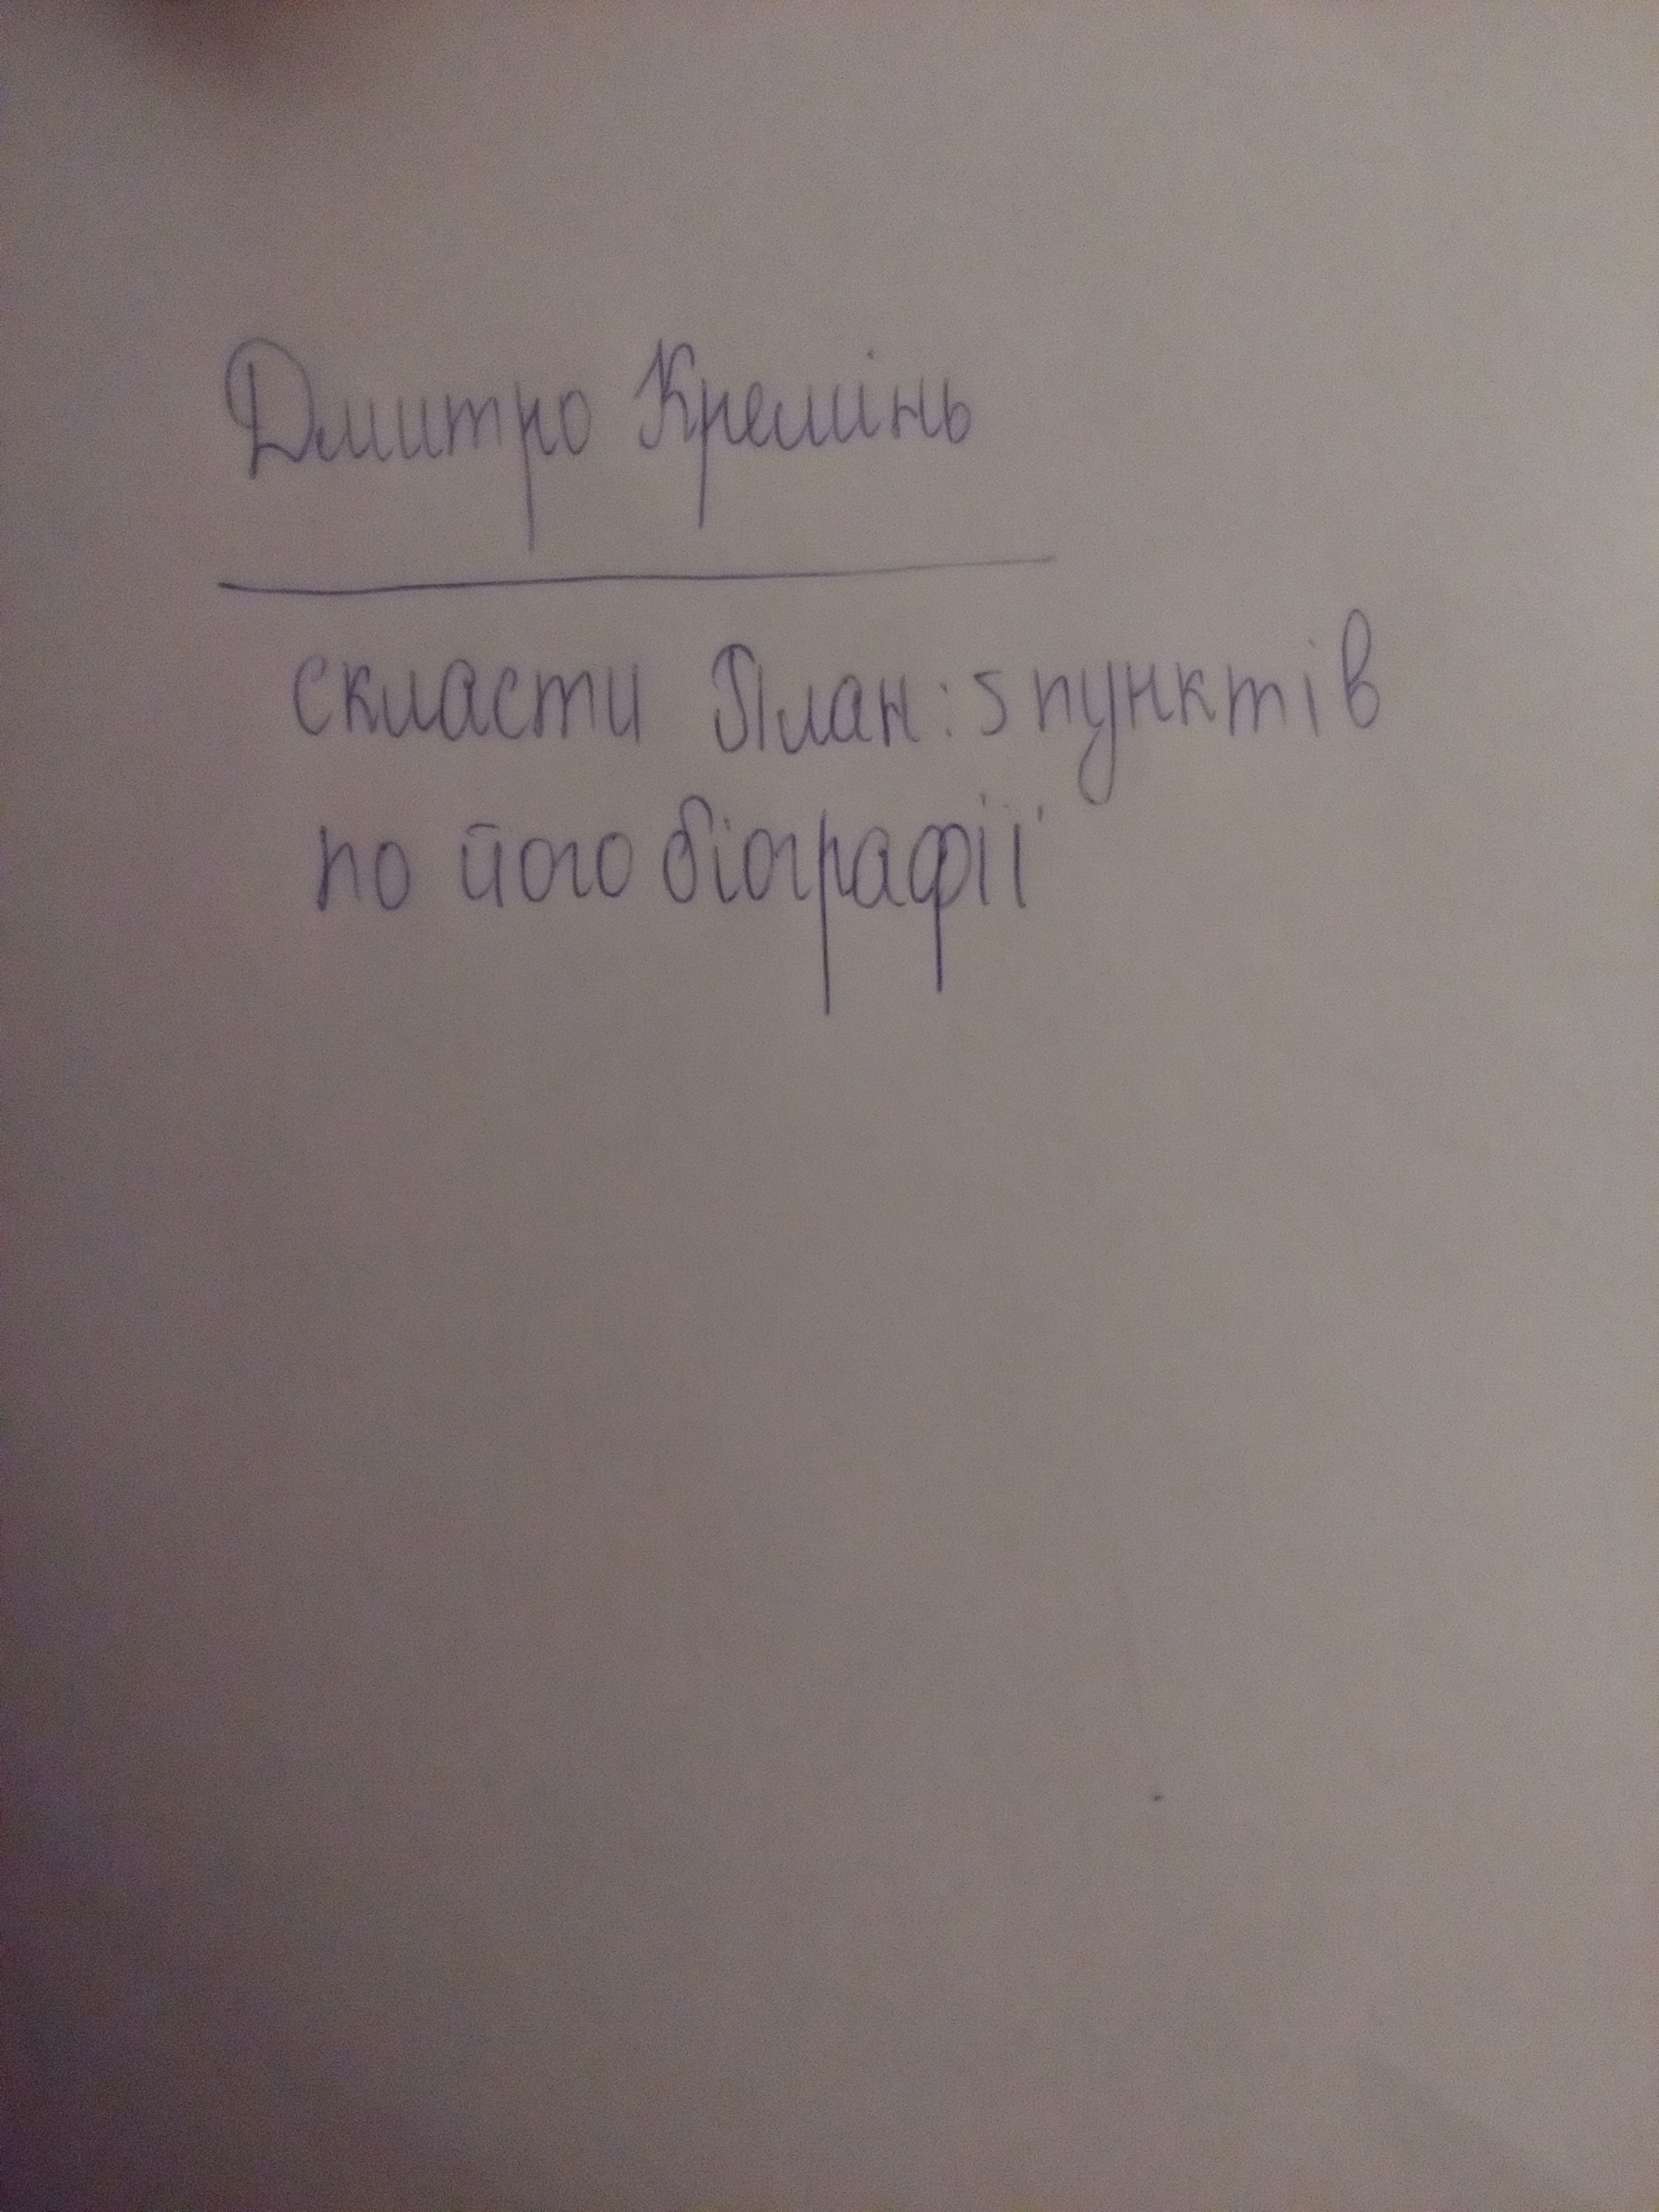 Дмитро Кремінь
скласти План: 5 пунктів
по його біографії